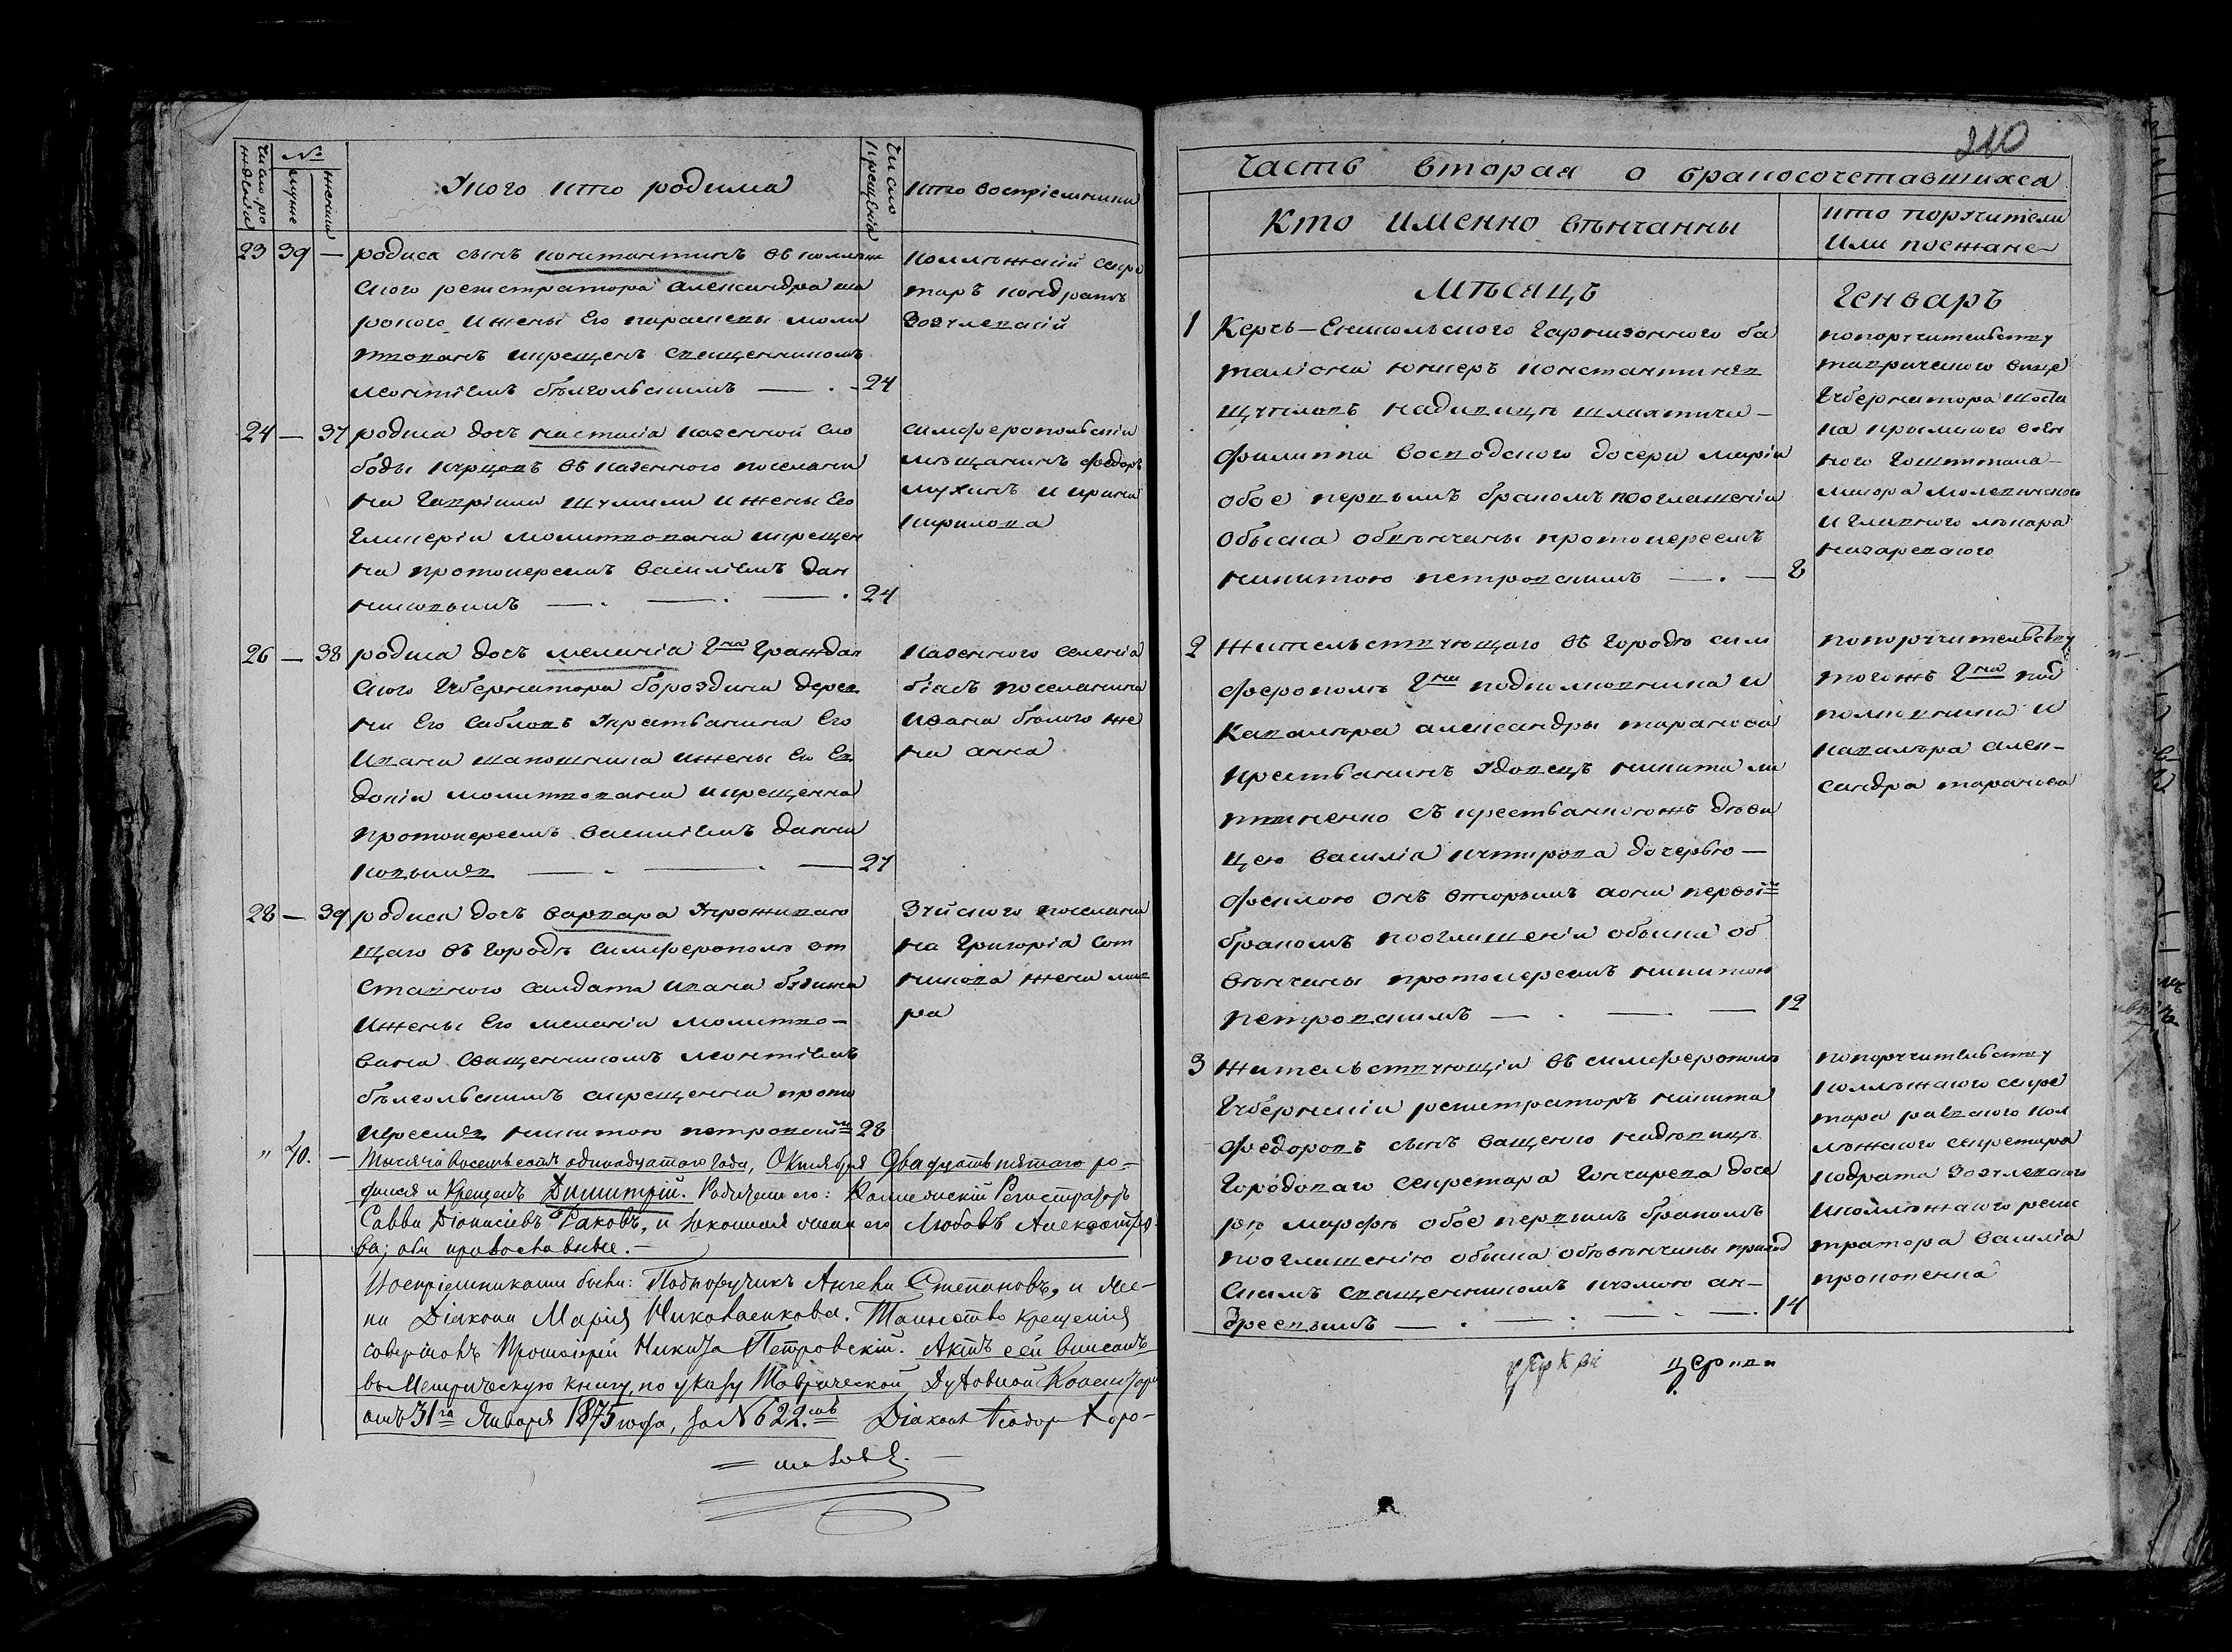 число рождения
№
мужие
женши
Уного кто родился
Число крещенія
кто воспріемники
23 39 — родися сынъ константинъ въ коллѣж
ского регистратора александра
рокого ижены Его парасковы моли
твованъ икрещенъ священникомъ
леонтіемъ бѣлгольскимъ — . - 24
коллѣжскій секре
таръ кондратъ
24 — 37 родися дочь настасія казенной сло
боды курцовъ въ казенного поселяни
на гавріила шумила ижены Его
гликеріи молитвована икрещен
на протоіереемъ василіемъ дан
ниловымъ — . — . — . 24
симферопольскій
мѣщанинъ федоръ
мухинъ и ирина
кирилова
26 — 38 родися дочь меланія Гна граждан
ского губернатора бороздина дерев
ни Его сабловъ Укрестьянина Его
ивана шапошника ижены Его Ев
докіи молитвована икрещенна
протоіереемъ василіемъ данни
ловымъ — . — . — 27
казенного селенія
біаъ поселянина
ивана бѣлого же
на анна
28 — 39 родися дочь варвара Упроживаю
щаго въ городѣ симферополѣ от
ставного салдата ивана
ижены Его меланіи молитво-
вана священникомъ леонтіемъ
бѣлгольскимъ акрещенна прото
іереемъ никитою петровскимъ 28
Зуйского поселяни
на григорія сот
никова жена мав
ра
" 40. — Тысяча восемьсотъ одинадцатаго года, Октября двадцать пятаго ро-
дился и крещенъ Димитрій. Родители его: Коллежскій Регистраторъ
Савва Діонисіевъ Раковъ, и законная жена его Любовь Александро-
ва; оба православные. —
Воспріемниками были: Подпоручикъ Ангели Степановъ, и же-
на Діакона Марія Николаенкова. Таинство крещенія
совершалъ Протоіерей Никита Петровскій. Актъ сей вписанъ
въ Метрическую книгу, по указу Таврической Духовной Консисторіи
отъ 31го Января 1875 года, за № 622.мъ Діаконъ Ѳеодоръ Хоро-
= шаловъ. —
210
Часть вторая о бракосочетавшихся
Кто именно вѣнчанны
кто поручители
или поежане
Мѣсяцъ
Генваръ
1 Керчъ-Еникольского гарнизонного ба
таліона юнкеръ константинъ
щегловъ надивицѣ шляхтича -
филиппа восводского дочери маріи
обое первымъ бракомъ пооглашеніи
обыска обвѣнчаны протоіереемъ
никитою петровскимъ — . — 8
попоручительству
таврического вице
губернатора шоста
ка крымского воен
ного гошпиталя
маіора молевинского
и главного лѣкара
назаревского
2 жительствующаго въ городѣ сим
ферополѣ Гна подполковника и
Кавалера александры таранова
крестьянинъ Удовецъ никита ли
твиненко съ крестьянкоюжъ дѣви
цею василія кутырова дочерью —
феклою онъ вторымъ аона первым
бракомъ пооглашеніи обыска об
вѣнчаны протоіереемъ никитою
петровскимъ — . — . — 12
попоручительству
тогожъ Гна под
полковника и
кавалера алек-
сандра таранова
3 жительствующіи въ симферополѣ
губернскіи регистраторъ никита
федоровъ сынъ ващенко надѣвицѣ
городоваго секретара гончарева доче
рю марфѣ обое первымъ бракомъ
пооглашенію обыска обовѣнчаны приход
скимъ священникомъ кузмою ан-
дреевымъ — . — : — . — . 14
попоручительству
коллѣжского секре
тара раевского кол
лѣжского секретара
кодрата
иколлѣжского регис
тратора василія
прокопенка
церкви